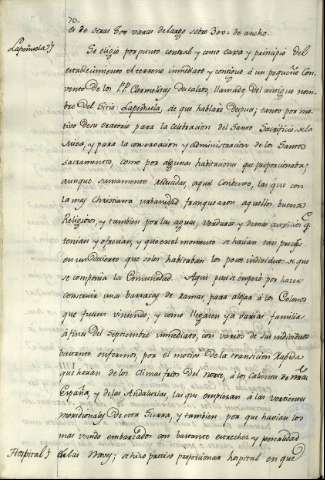 70.
es de otras 600 varas de largo sobre 300. de ancho.
Lapeñuela
Se eligio por punto central, y como cavo y principio del
establecimiento el terreno inmediato y contiguo á un pequeño Con-
vento de los PP. Carmelitas Descalzos, llamado del antiguo nom-
bre del Sitio Lapeñuela, de que hablare despues; tanto por mo-
tivo de su oratorio para la celebracion del Santo Sacrificio de la
Misa, y para la convocacion y administracion de los Santos
sacramentos, como por algunas habitaciones que proporcionaba,
aunque sumamente reducidas, aquel Convento, las que con
la muy Christiana urbanidad franquearon aquellos buenos
Religiosos, y tambien por las aguas, verduras y demas que
tenian y ofrecian, y que en el momento se havian
en un Desierto que solos habitaban los pocos individuos de que
se componia la Comunidad. Aqui pues se empezó por hacer
construir una barraca de ramas para alojar á los Colonos
que fuesen viniendo, y como llegasen ya varias familias
á fines del Septiembre inmediato, con varios de sus individuos
bastante enfermos, por el motivo de la transicion rapida
que hacian de los climas frios del Norte, á los calurosos de
España, y de las Andalucias, las que empiezan á las vertientes
meridionales de esta Sierra, y tambien por que havian los
mas venido embarcados con bastante estrechez y penalidad
Hospital
de las Naos; se hizo preciso proporcionar hospital en que